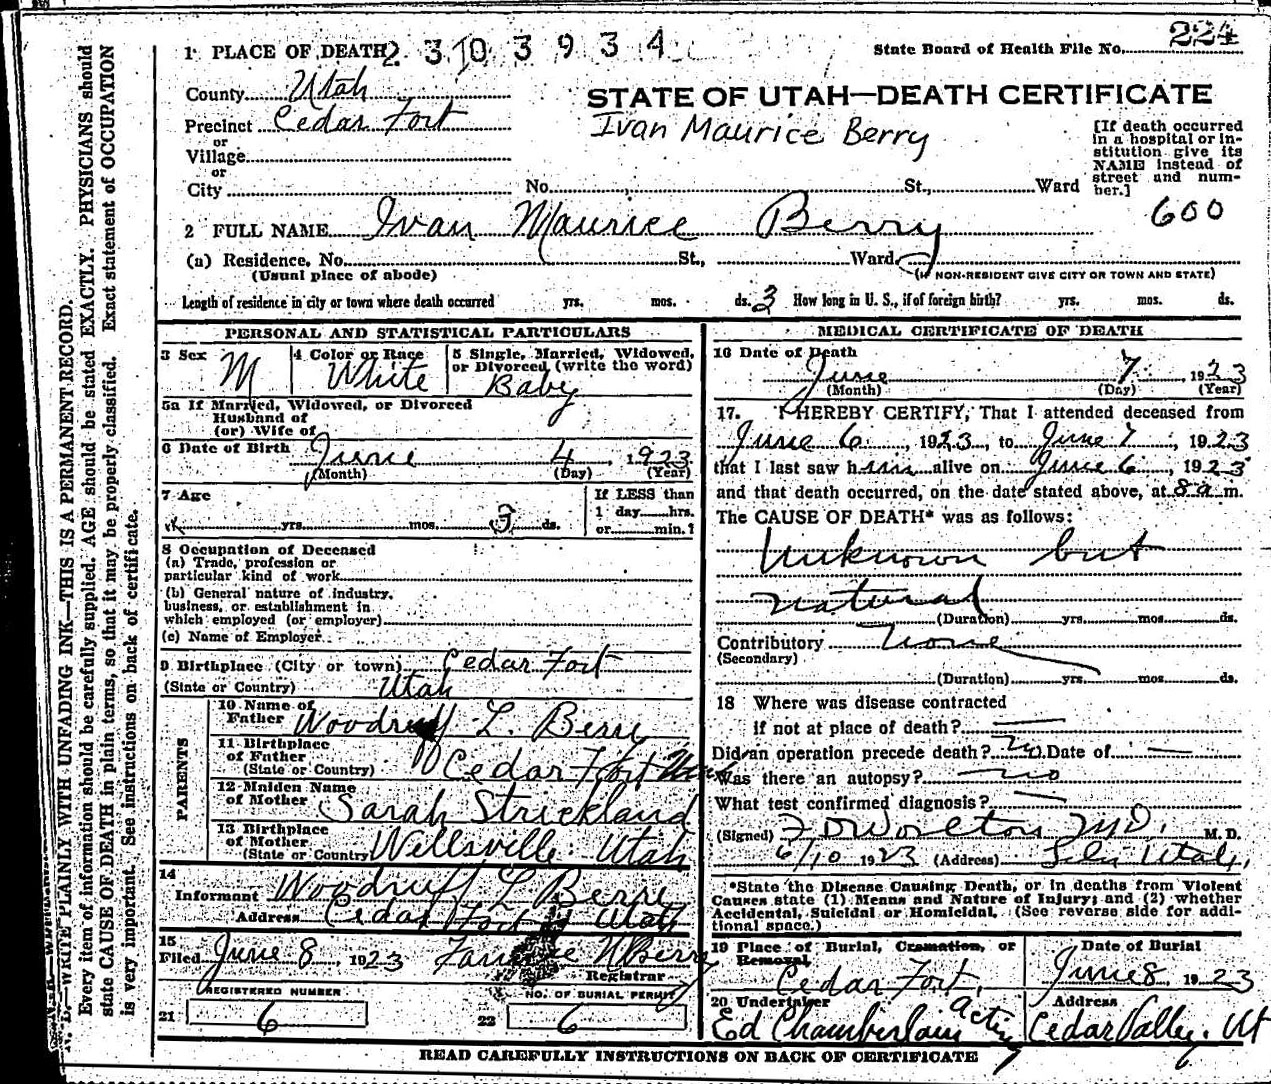 224
1 PLACE OF DEATH 2303934 State Board of Health File No.
County Utah
STATE OF UTAH—DEATH CERTIFICATE
Precinct Cedar Fort
Ivan Maurice Berry
or
Village
or
City No. St., Ward
[If death occurred
in a hospital or in-
stitution give its
NAME instead of
street and num-
ber.]
600
2 FULL NAME Ivan Maurice Berry
(a) Residence, No. St., Ward.
(Usual place of abode) (IF NON-RESIDENT GIVE CITY OR TOWN AND STATE)
Length of residence in city or town where death occurred yrs. mos. ds. 3 How long in U. S., if of foreign birth? yrs. mos. ds.
PERSONAL AND STATISTICAL PARTICULARS
3 Sex M
4 Color or Race White
5 Single, Married, Widowed,
or Divorced (write the word)
Baby
5a If Married, Widowed, or Divorced
Husband of
(or) Wife of
6 Date of Birth June 4, 1923
(Month) (Day) (Year)
7 Age
yrs. mos. 3 ds.
If LESS than
1 day hrs.
or min.?
8 Occupation of Deceased
(a) Trade, profession or
particular kind of work
(b) General nature of industry,
business, or establishment in
which employed (or employer)
(c) Name of Employer
9 Birthplace (City or town) Cedar Fort
(State or Country) Utah
PARENTS
10 Name of
Father Woodruff L. Berry
11 Birthplace
of Father
(State or Country) Cedar Fort
12 Maiden Name
of Mother Sarah Strickland
13 Birthplace
of Mother
(State or Country Wellsville Utah
14
Informant Woodruff L Berry
Address Cedar Fort Utah
15
Filed June 8, 1923 Berry
Registrar
REGISTERED NUMBER NO. OF BURIAL PERMIT
21 6 22 6
MEDICAL CERTIFICATE OF DEATH
16 Date of Death
June 7 1923
(Month) (Day) (Year)
17. I HEREBY CERTIFY, That I attended deceased from
June 6, 1923, to June 7, 1923
that I last saw him alive on June 6, 1923
and that death occurred, on the date stated above, at 8 a m.
The CAUSE OF DEATH* was as follows:
Unknown but
natural
(Duration) yrs. mos. ds.
Contributory None
(Secondary)
(Duration) yrs. mos. ds.
18 Where was disease contracted
if not at place of death?
Did an operation precede death? no. Date of
Was there an autopsy? no
What test confirmed diagnosis?
(Signed) M.D. M. D.
6/10 1923 (Address) Utah
*State the Disease Causing Death, or in deaths from Violent
Causes state (1) Means and Nature of Injury; and (2) whether
Accidental, Suicidal or Homicidal. (See reverse side for addi-
tional space.)
19 Place of Burial, Cremation, or
Removal
Cedar Fort.
Date of Burial
June 8 1923
20 Undertaker
Ed Chamberlain acting
Address
Cedar Valley, Ut
READ CAREFULLY INSTRUCTIONS ON BACK OF CERTIFICATE
WRITE PLAINLY WITH UNFADING INK—THIS IS A PERMANENT RECORD.
Every item of information should be carefully supplied. AGE should be stated EXACTLY. PHYSICIANS should
state CAUSE OF DEATH in plain terms, so that it may be properly classified. Exact statement of OCCUPATION
is very important. See instructions on back of certificate.